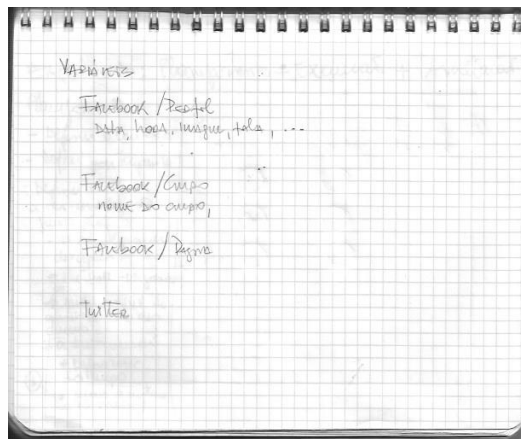 VARIÁVEIS
Facebook / Perfil
DATA, hora, imagem, fala, ...
Facebook / Grupo
nome do grupo,
Facebook / Página
TWITTER